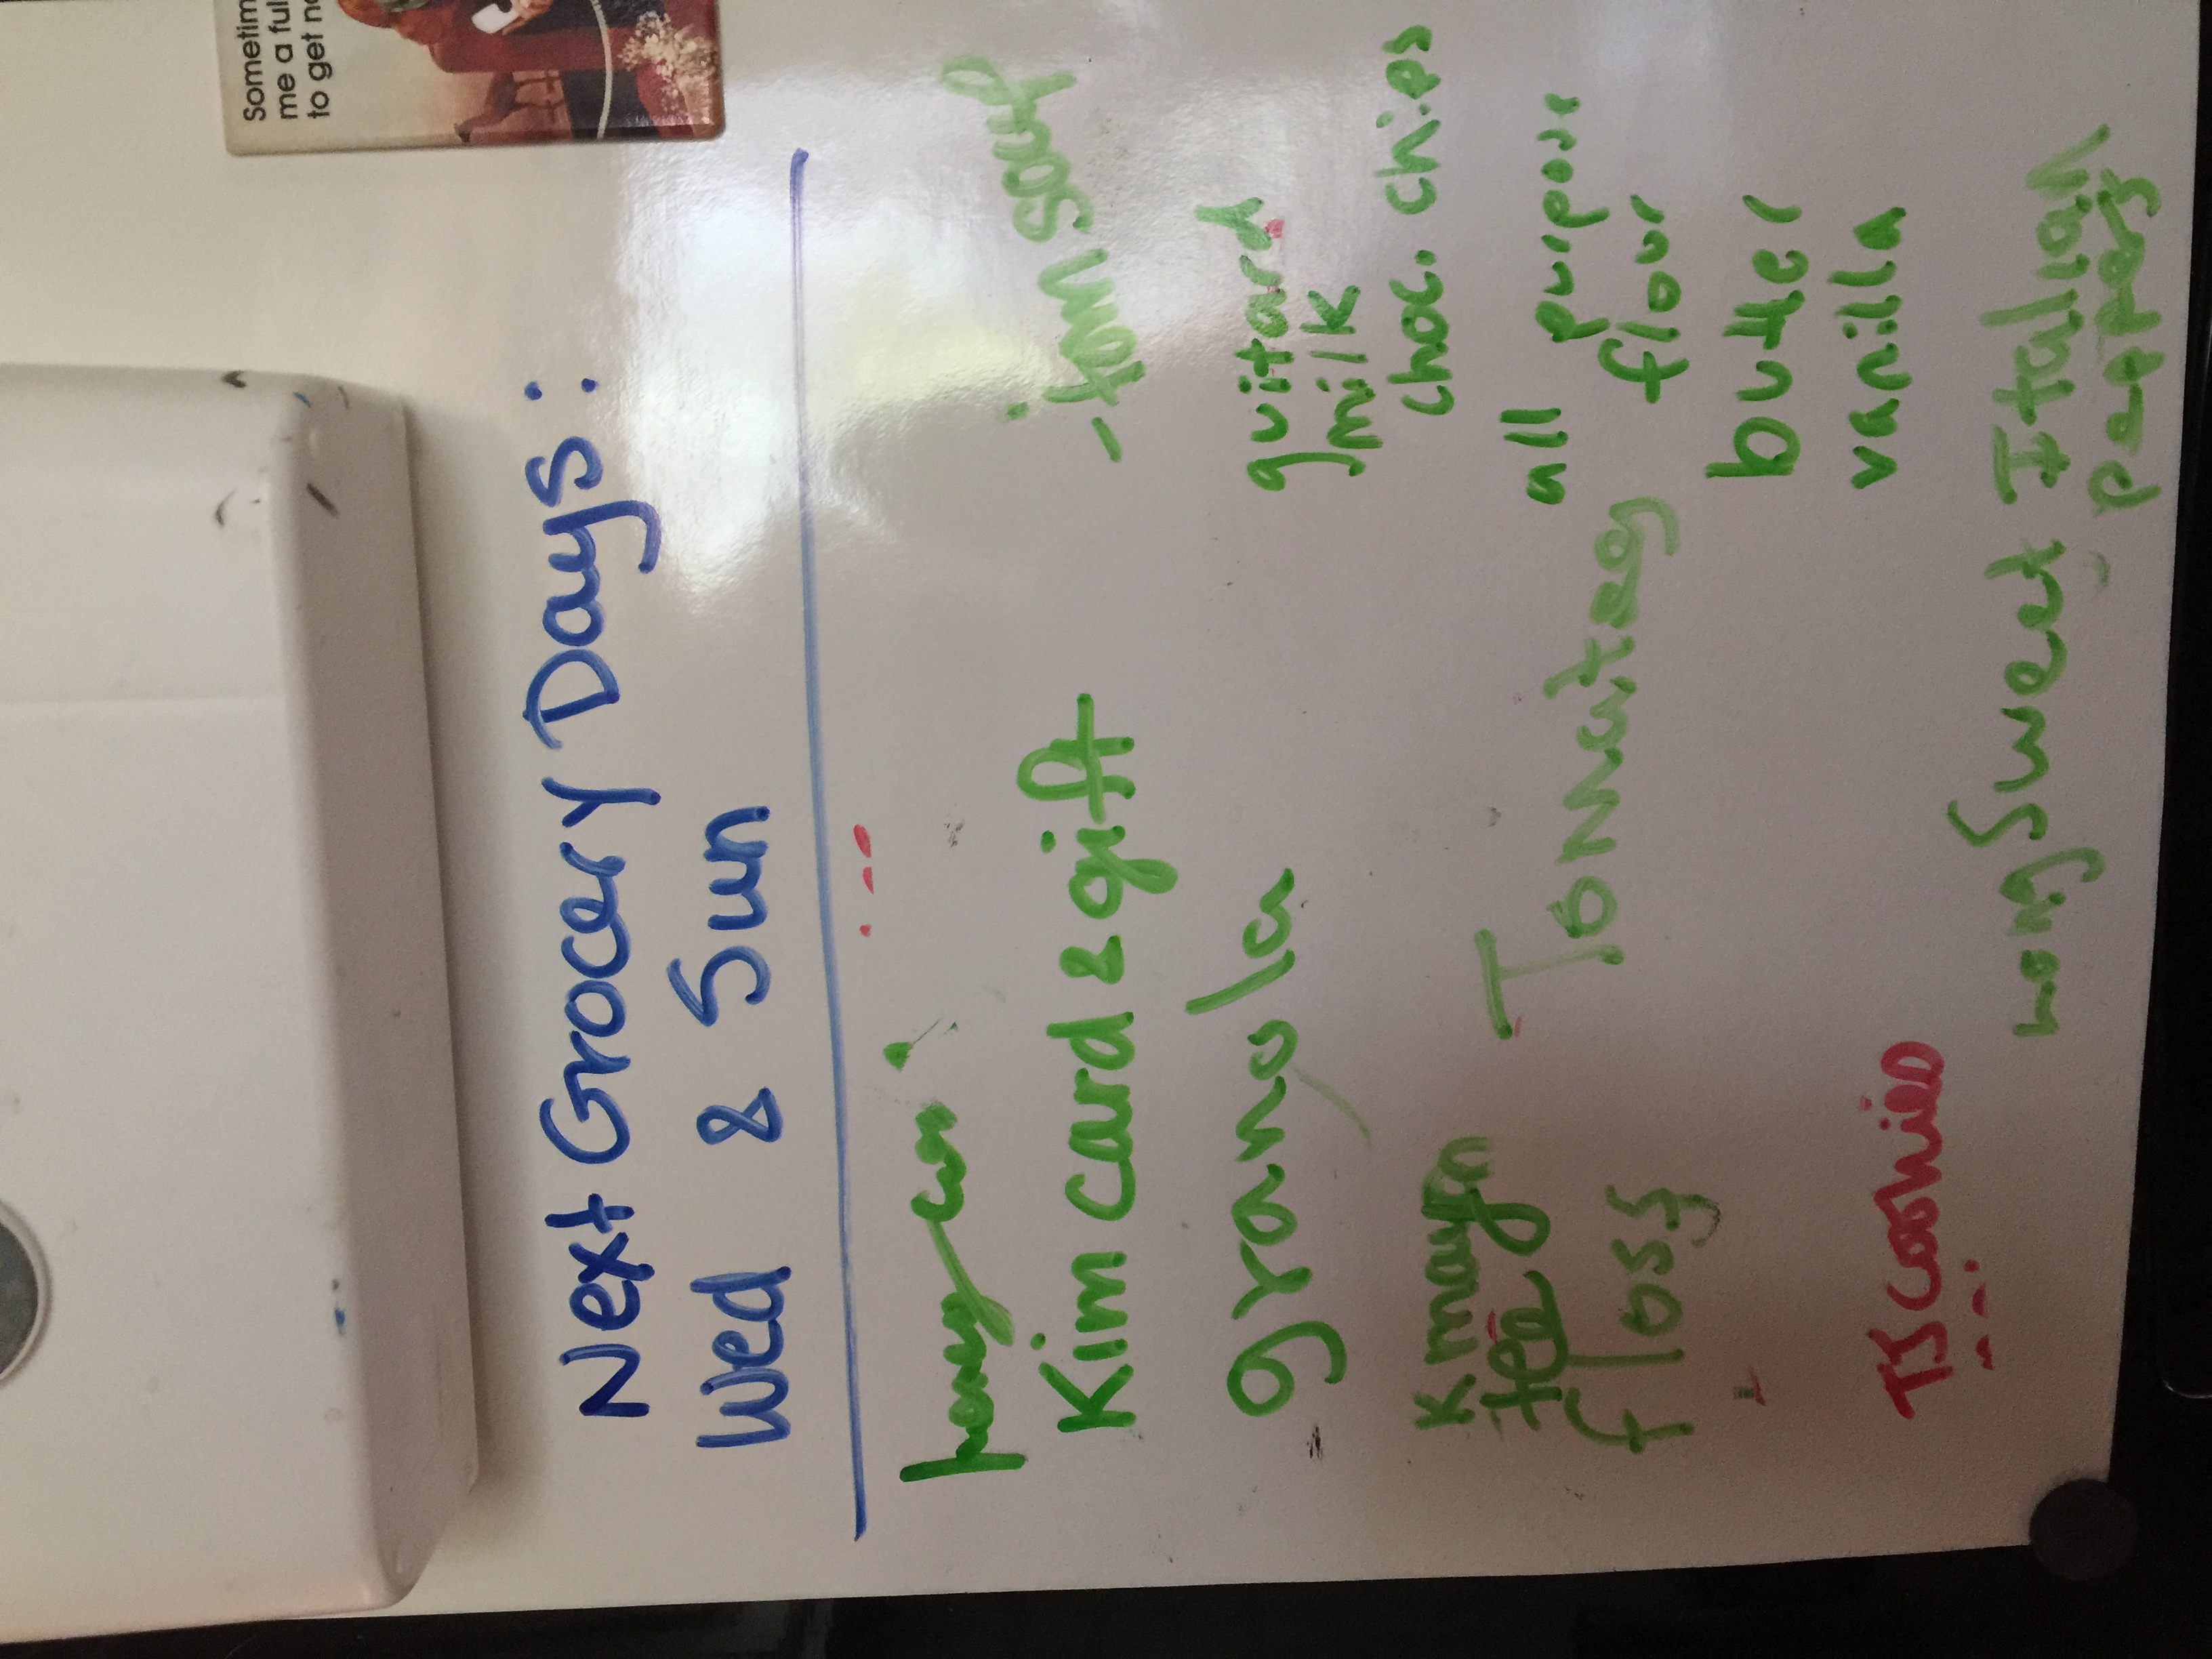 Sometim
me a ful
to get no
Next Grocery Days:
Wed & Sun
honey
Kim card & gift
granola
K mayo
tea
floss
TJ cookies
Tomatoes
- tom soup
guitard
milk
choc. chips
all purpose
flour
butter
vanilla
Long Sweet Italian
peppers